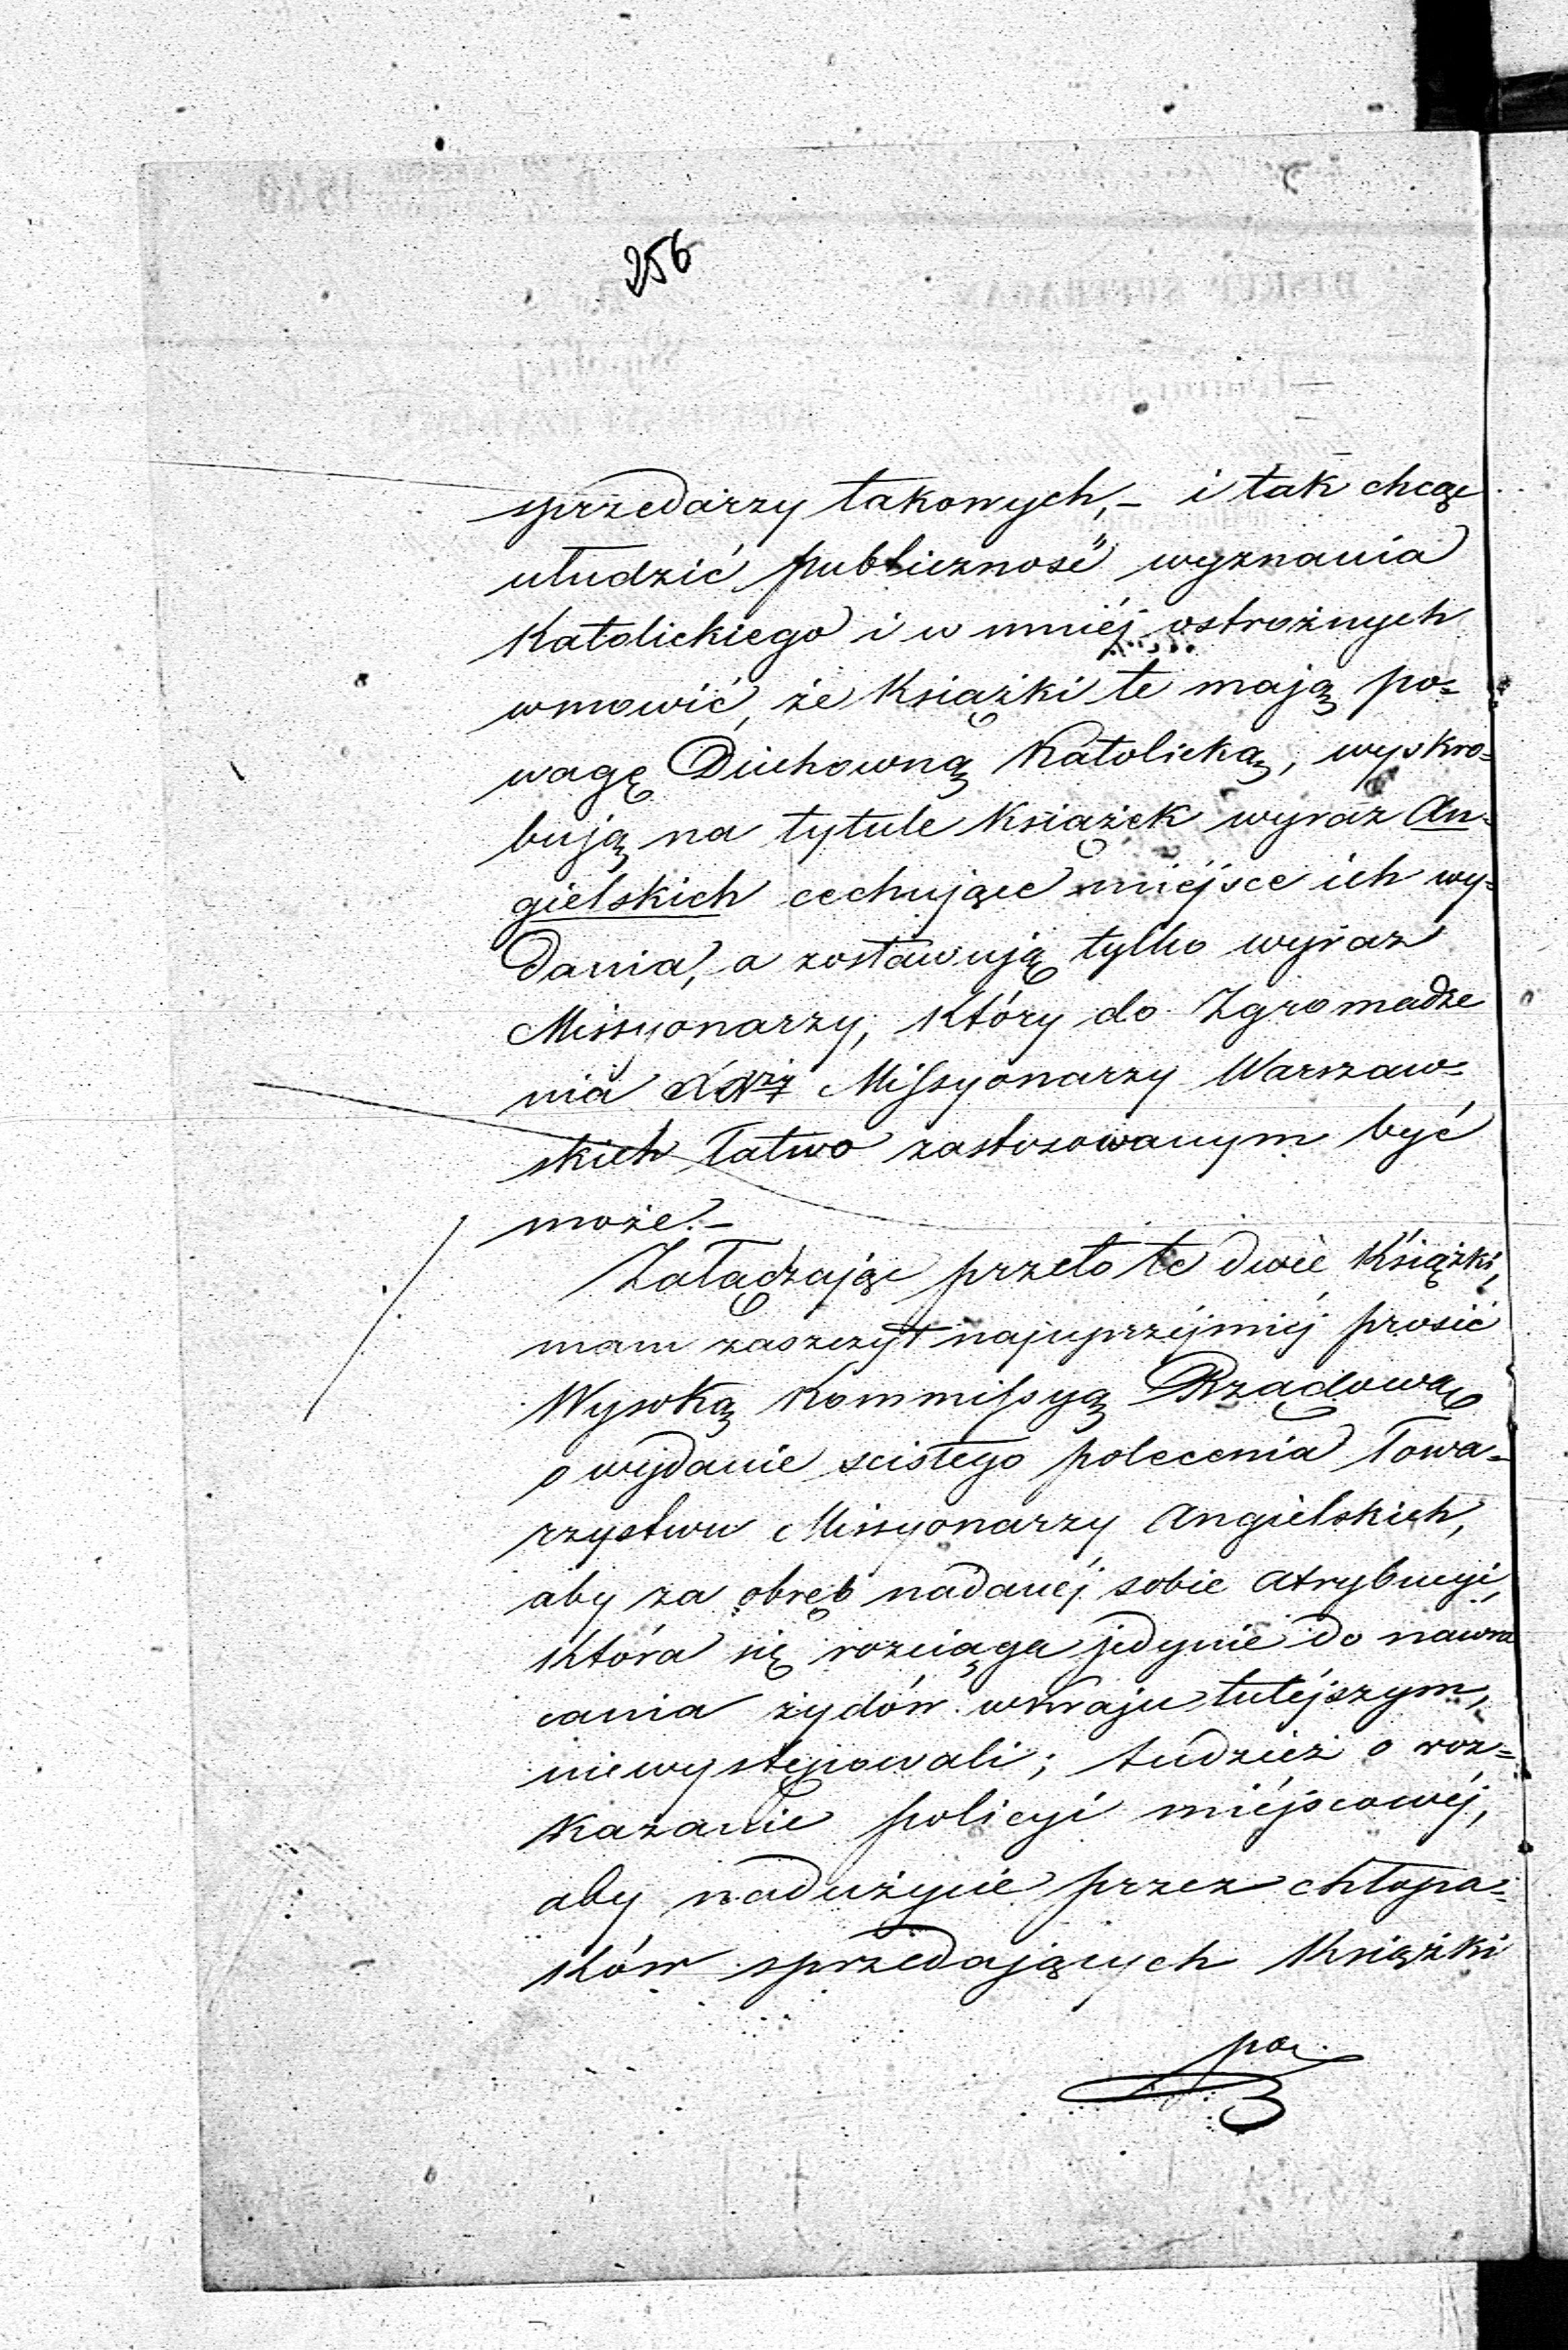 256
sprzedarzy takowych, – i tak chcąc
ułudzić publiczność wyznania
Katolickiego i w mniéj ostrożnych
wmowić, że Książki te mają po-
wagę Duchowną Katolicką, wyskro-
bują na tytule Książek wyraz An-
gielskich cechujące miejsce ich wy-
dania, a zostawują tylko wyraz
Missyonarzy, który do Zgromadze
nia XXży Missyonarzy Warszaw-
skich łatwo zastosowanym być
może. –
Załączając przeto te dwie Książki,
mam zaszczyt najuprzéjmiéj prosić
Wysoką Kommissyą Rządową
o wydanie scisłego polecenia Towa-
rzystwu Missyonarzy Angielskich,
aby za obręb nadanéj sobie atrybucyi,
która się rozciąga jedynie do nawra
cania żydów w kraju tutéjszym,
niewystępowali; tudzież o roz-
kazanie policyi miéjscowéj,
aby nadużycie przez chłopa-
ków sprzedających Książki